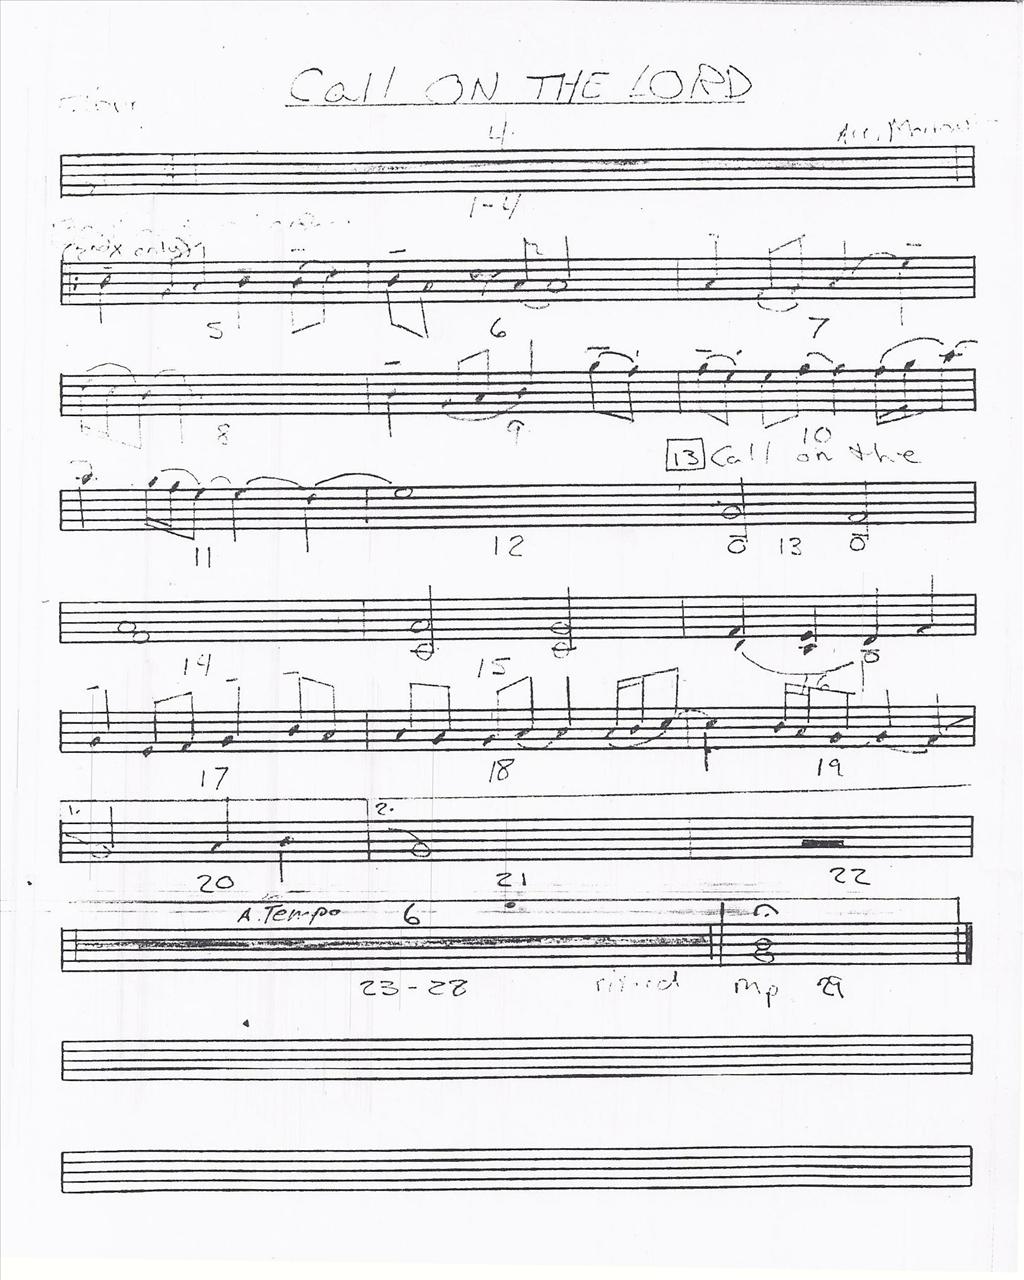 Call ON THE LORD
4
Arr.
1-4
only)
5 6 7
8 9 10
13 Call on the
11 12 13
14 15 16
17 18 19
1. 2.
20 21 22
A. Tempo 6
23-28 mp 29